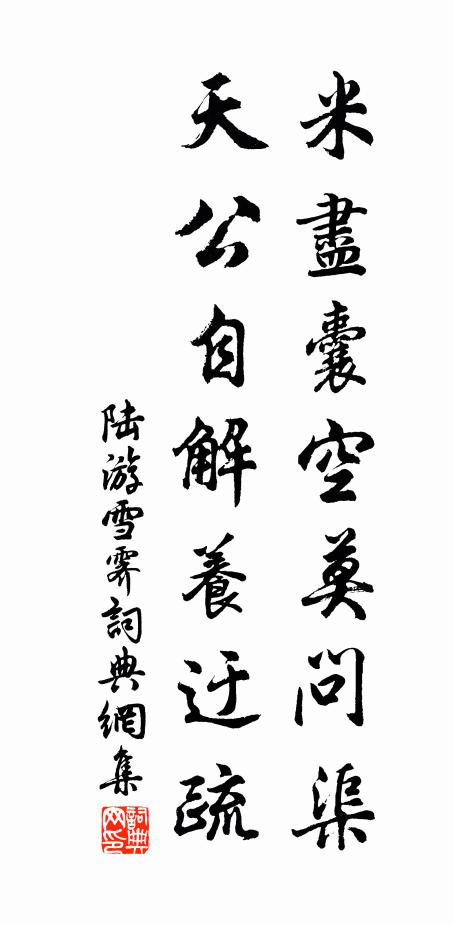 米盡囊空莫問渠
天公自解養迂疏
陆游雪霁詞典網集
詞典網印